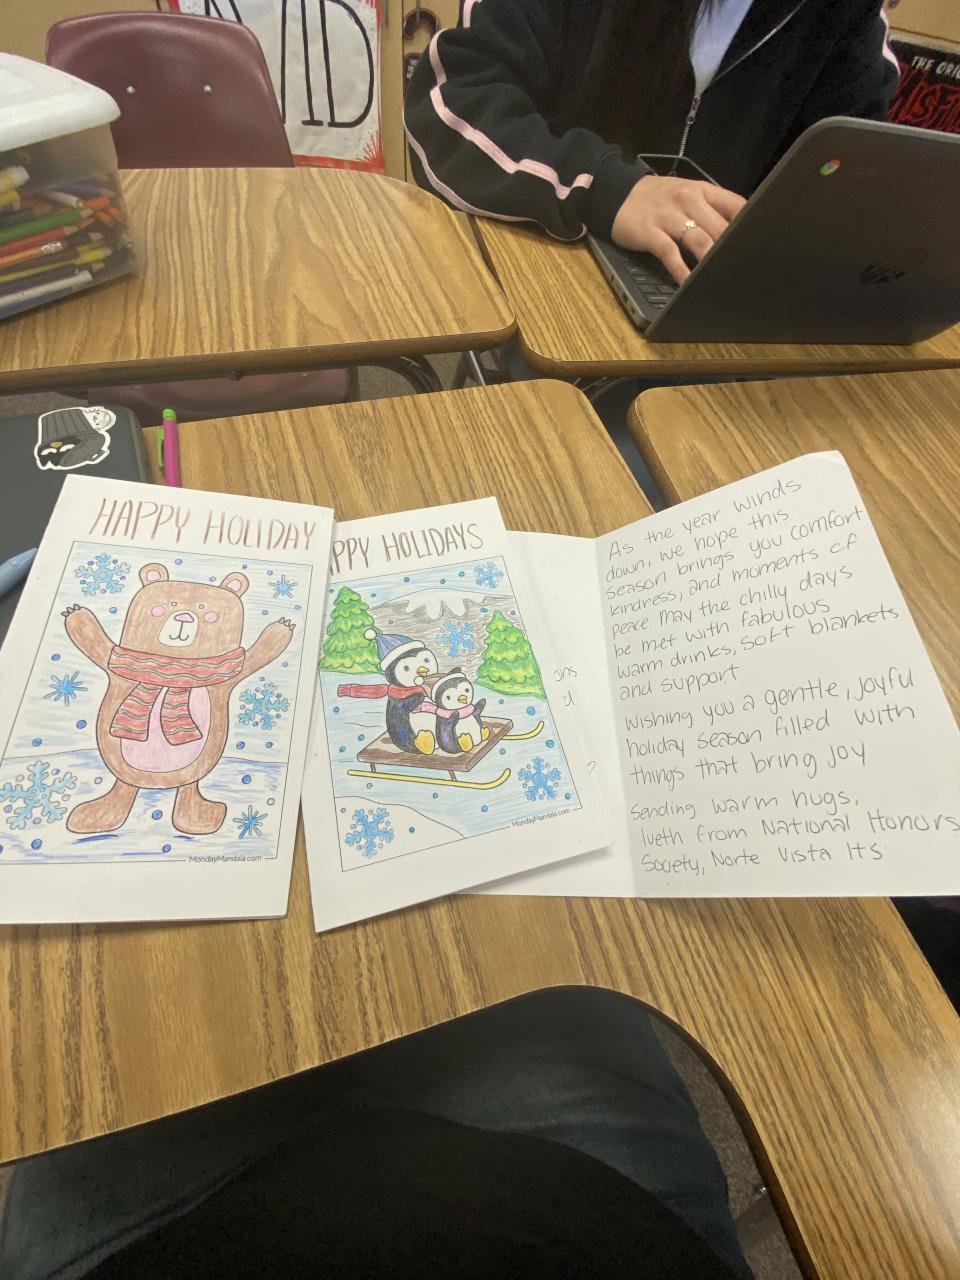 THE ORIG
MISF
HAPPY HOLIDAY
MondayMandala.com
PPY HOLIDAYS
MondayMandala.com
As the year winds
down, we hope this
season brings you comfort
kindness, and moments of
peace. May the chilly days
be met with fabulous
warm drinks, soft blankets
and support
Wishing you a gentle, joyful
holiday season filled with
things that bring joy
Sending warm hugs,
Iveth from National Honors
Society, Norte Vista HS
hp